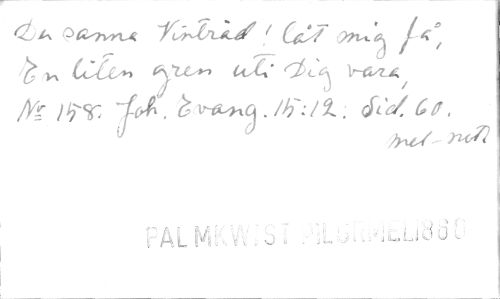 Du sanna Vinträd! låt mig få,
En liten gren uti Dig vara,
No 158. Joh. Evang. 15:12. Sid. 60.
mel-not.
PALMKWIST PILGRMEL1860